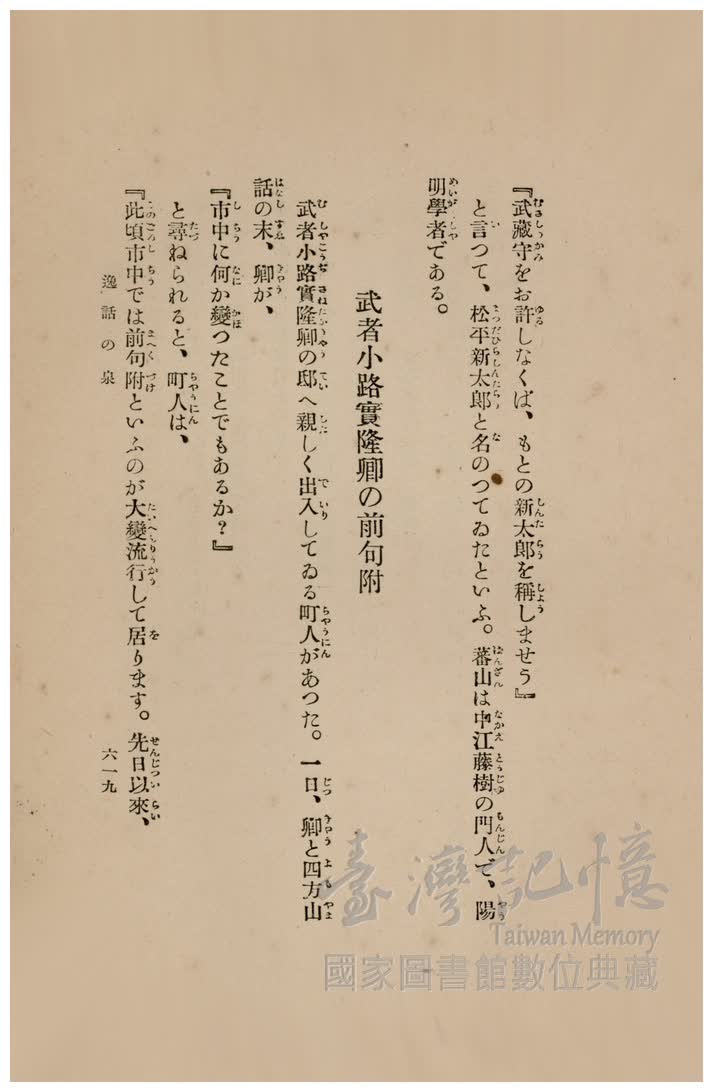 『武藏守をお許しなくば、もとの新太郎を稱しませう』
と言つて、松平新太郎と名のつてゐたといふ。蕃山は中江藤樹の門人で、陽
明學者である。
武者小路實隆卿の前句附
武者小路實隆卿の邸へ親しく出入してゐる町人があつた。一日、卿と四方山
話の末、卿が、
『市中に何か變つたことでもあるか？』
と尋ねられると、町人は、
『此頃市中では前句附といふのが大變流行して居ります。先日以來、
逸話の泉
六一九
臺灣記憶
Taiwan Memory
國家圖書館數位典藏